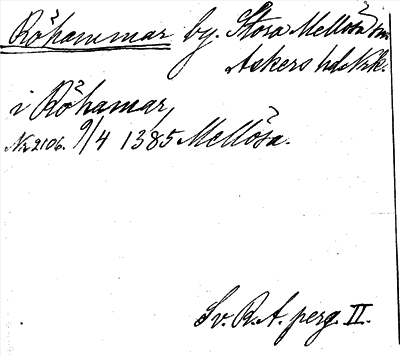 Röhammar by. Stora Mellösa sn
Askers hd Nrk.
i Röhamar,
Nr 2106. 9/4 1385 Mellösa.
Sv. R.A. perg. II.